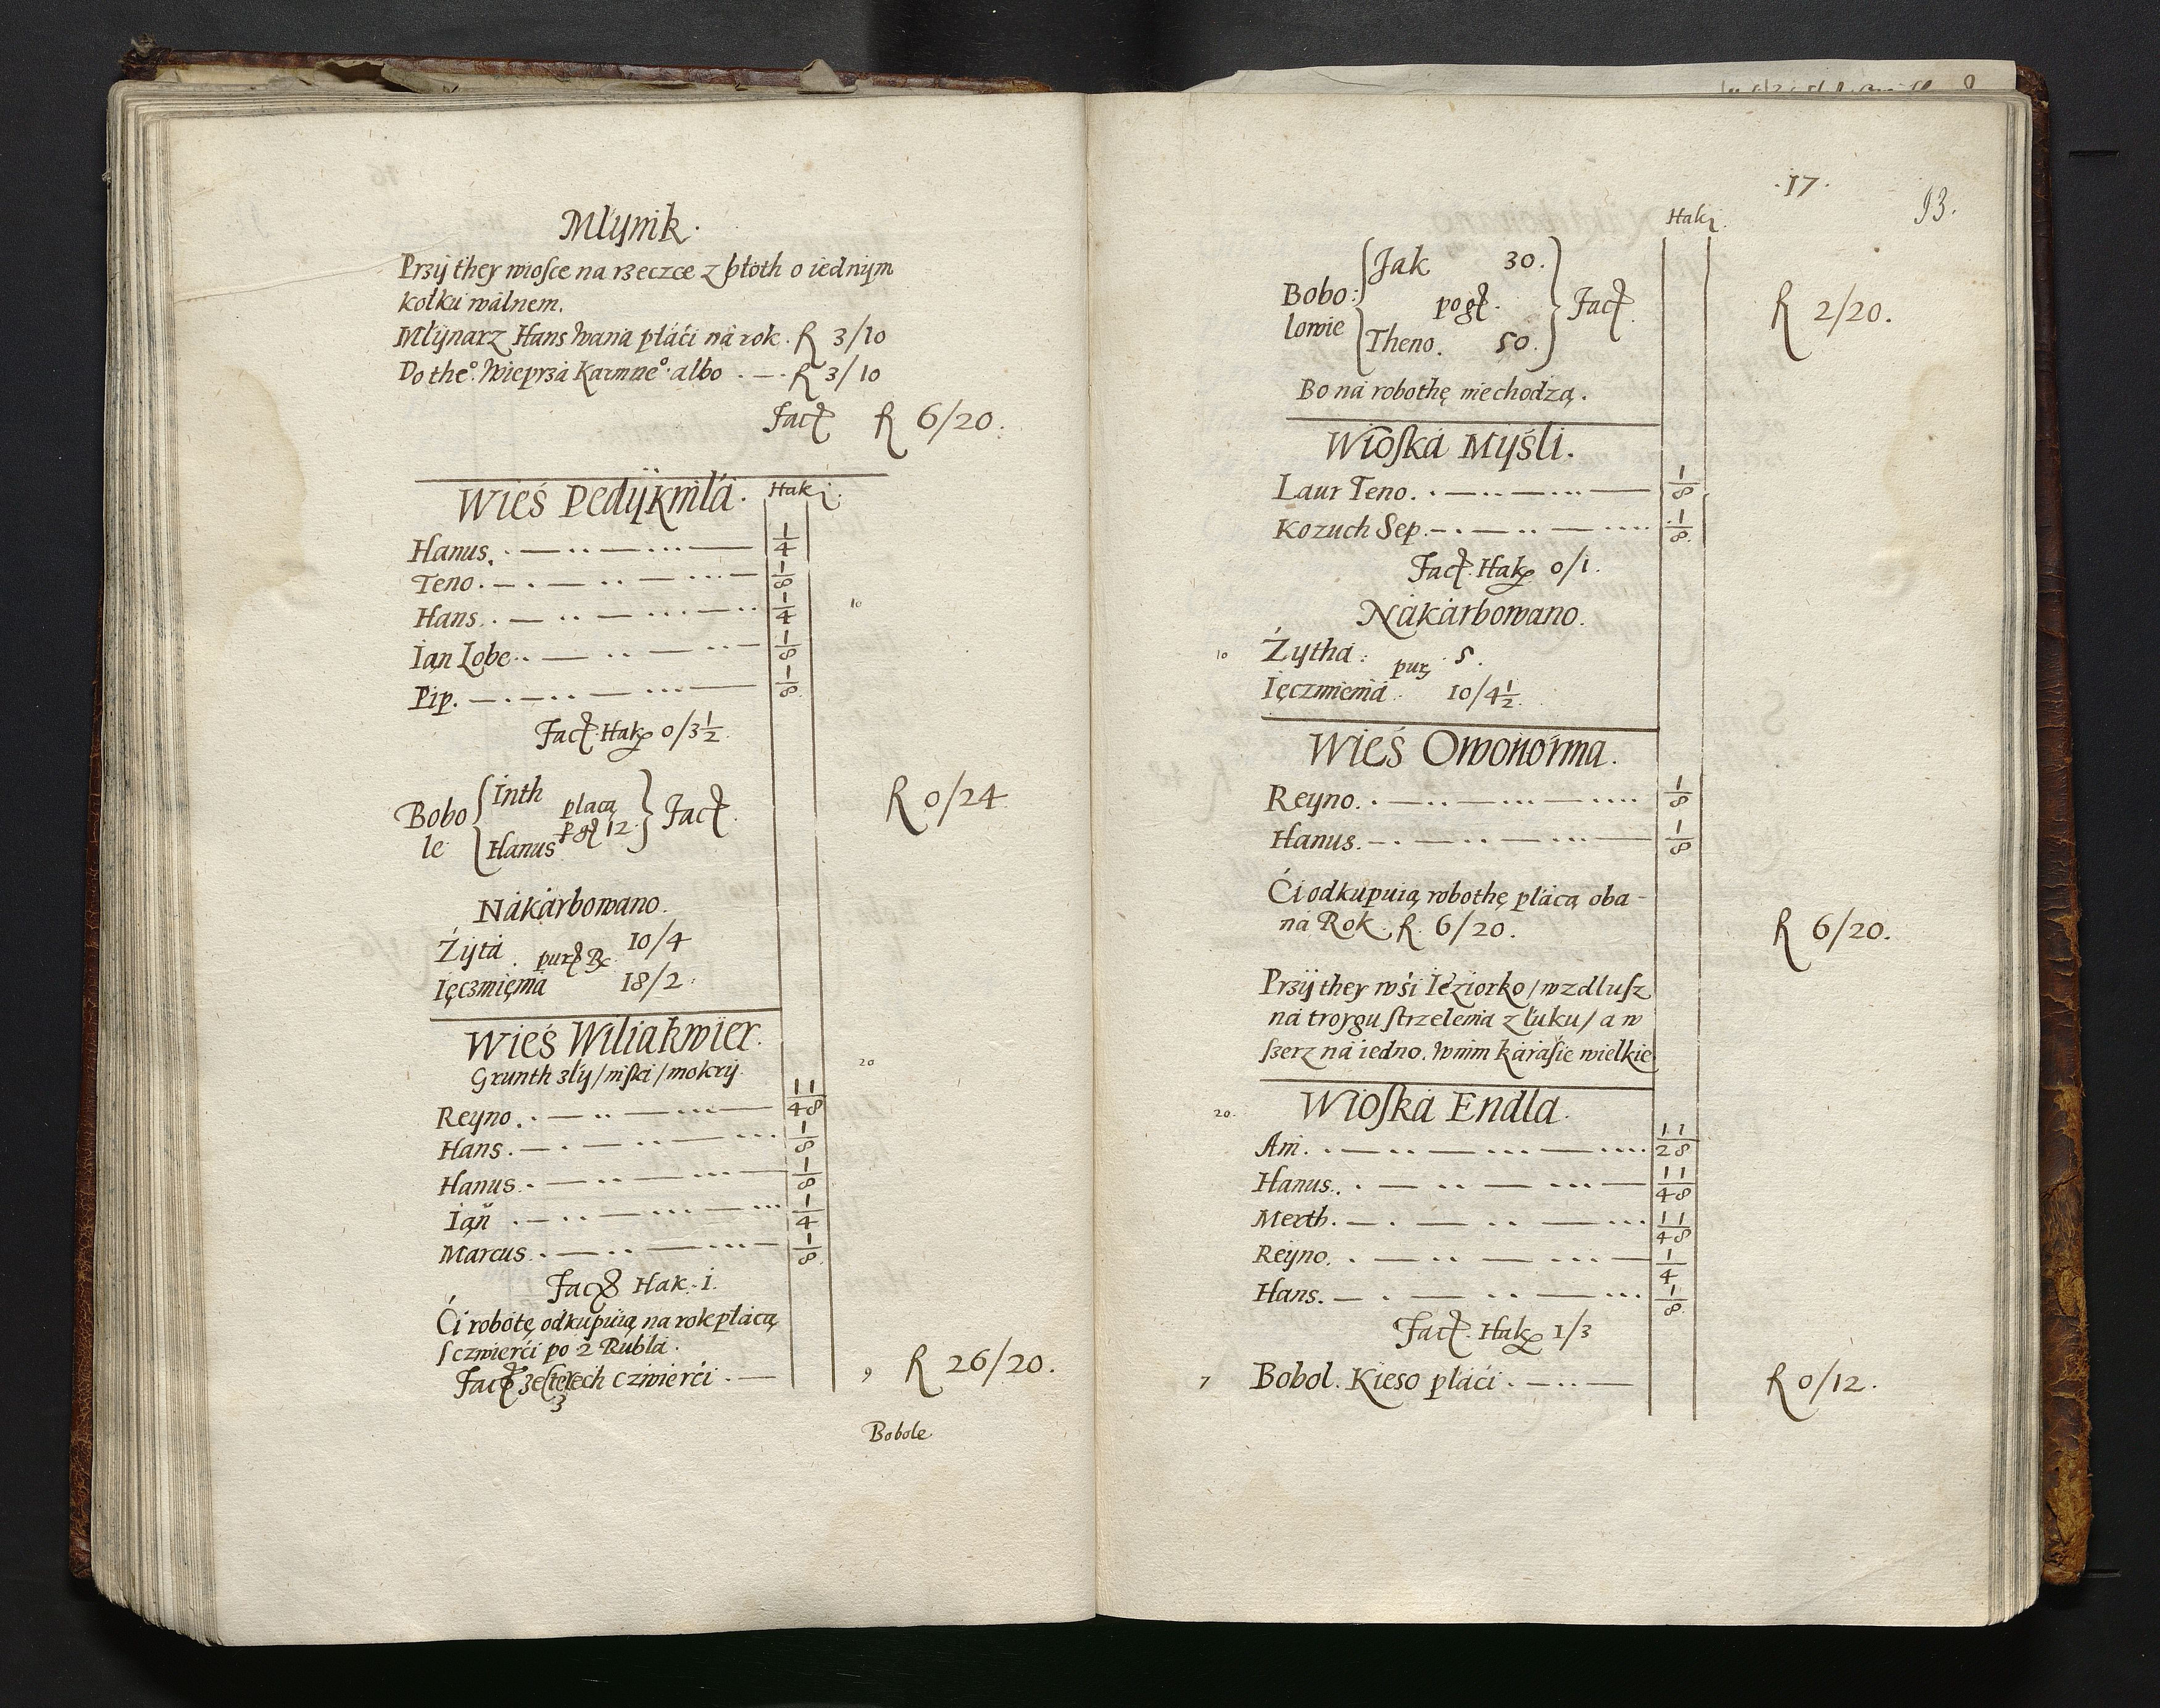 Młynik.
Przÿ they wiosce na rzeczce z błoth o iednÿm
kołku wálnem.
Młÿnarz Hans Wana płáći ná rok. R 3/10
Do the°. Wieprzá Karmne°. álbo . — . R 3/10
Facᵗ R 6/20.
Wieś Pedÿkmlá. Hak
Hanus. 1/4
Teno. 1/8
Hans. 1/4
10
Ian Lobe 1/8
Pip. 1/8
Facᵗ. Hak 0/3 1/2
Bobo
le
Inth
Hanus
placą
pgł 12.
Facᵗ.
R 0/24
Nákárbowano.
Żÿtá 10/4
purᵗ
Ięczmięniá 18/2
Wieś Wiliakwier.
Grunth złÿ / niski / mokrÿ
20
Reyno. 1/4 1/8
Hans. 1/8
Hanus. 1/8
Ian 1/4
Marcus. 1/8
Fac Hak. 1.
Ći robotę odkupuią na rok płacą
s czwierći po 2 Rublá.
Fac ze czterech czwierći . — 9 R 26/20.
3
Bobole
.17.
93.
Hak
Bobo:
lowie
Jak 30.
pogł.
Theno. 50.
Facᵗ.
R 2/20.
Bo ná robothę niechodzą.
Wioská Mÿśli.
Laur Teno. 1/8
Kozuch Sep 1/8
Facᵗ. Hak 0/1.
Nákárbowano.
10
Żÿthá: 5.
pur
Ięczmieniá 10/4 1/2
Wieś Owonorma.
Reÿno. 1/8
Hanus. 1/8
Ći odkupuią robothę płácą oba-
ná Rok. R. 6/20.
R 6/20.
Przÿ they wśi Ieziorko / wzdlusz
ná troygu strzelenia z łuku / a w
szerz ná iedno. Wnim kárásie wielkie
20.
Wioská Endla.
Ani. 1/2 1/8
Hanus. 1/4 1/8
Merth. 1/4 1/8
Reÿno. 1/4
Hans. 1/8
Facᵗ. Hak 1/3
7 Bobol. Kieso płáći . — .. — R 0/12.